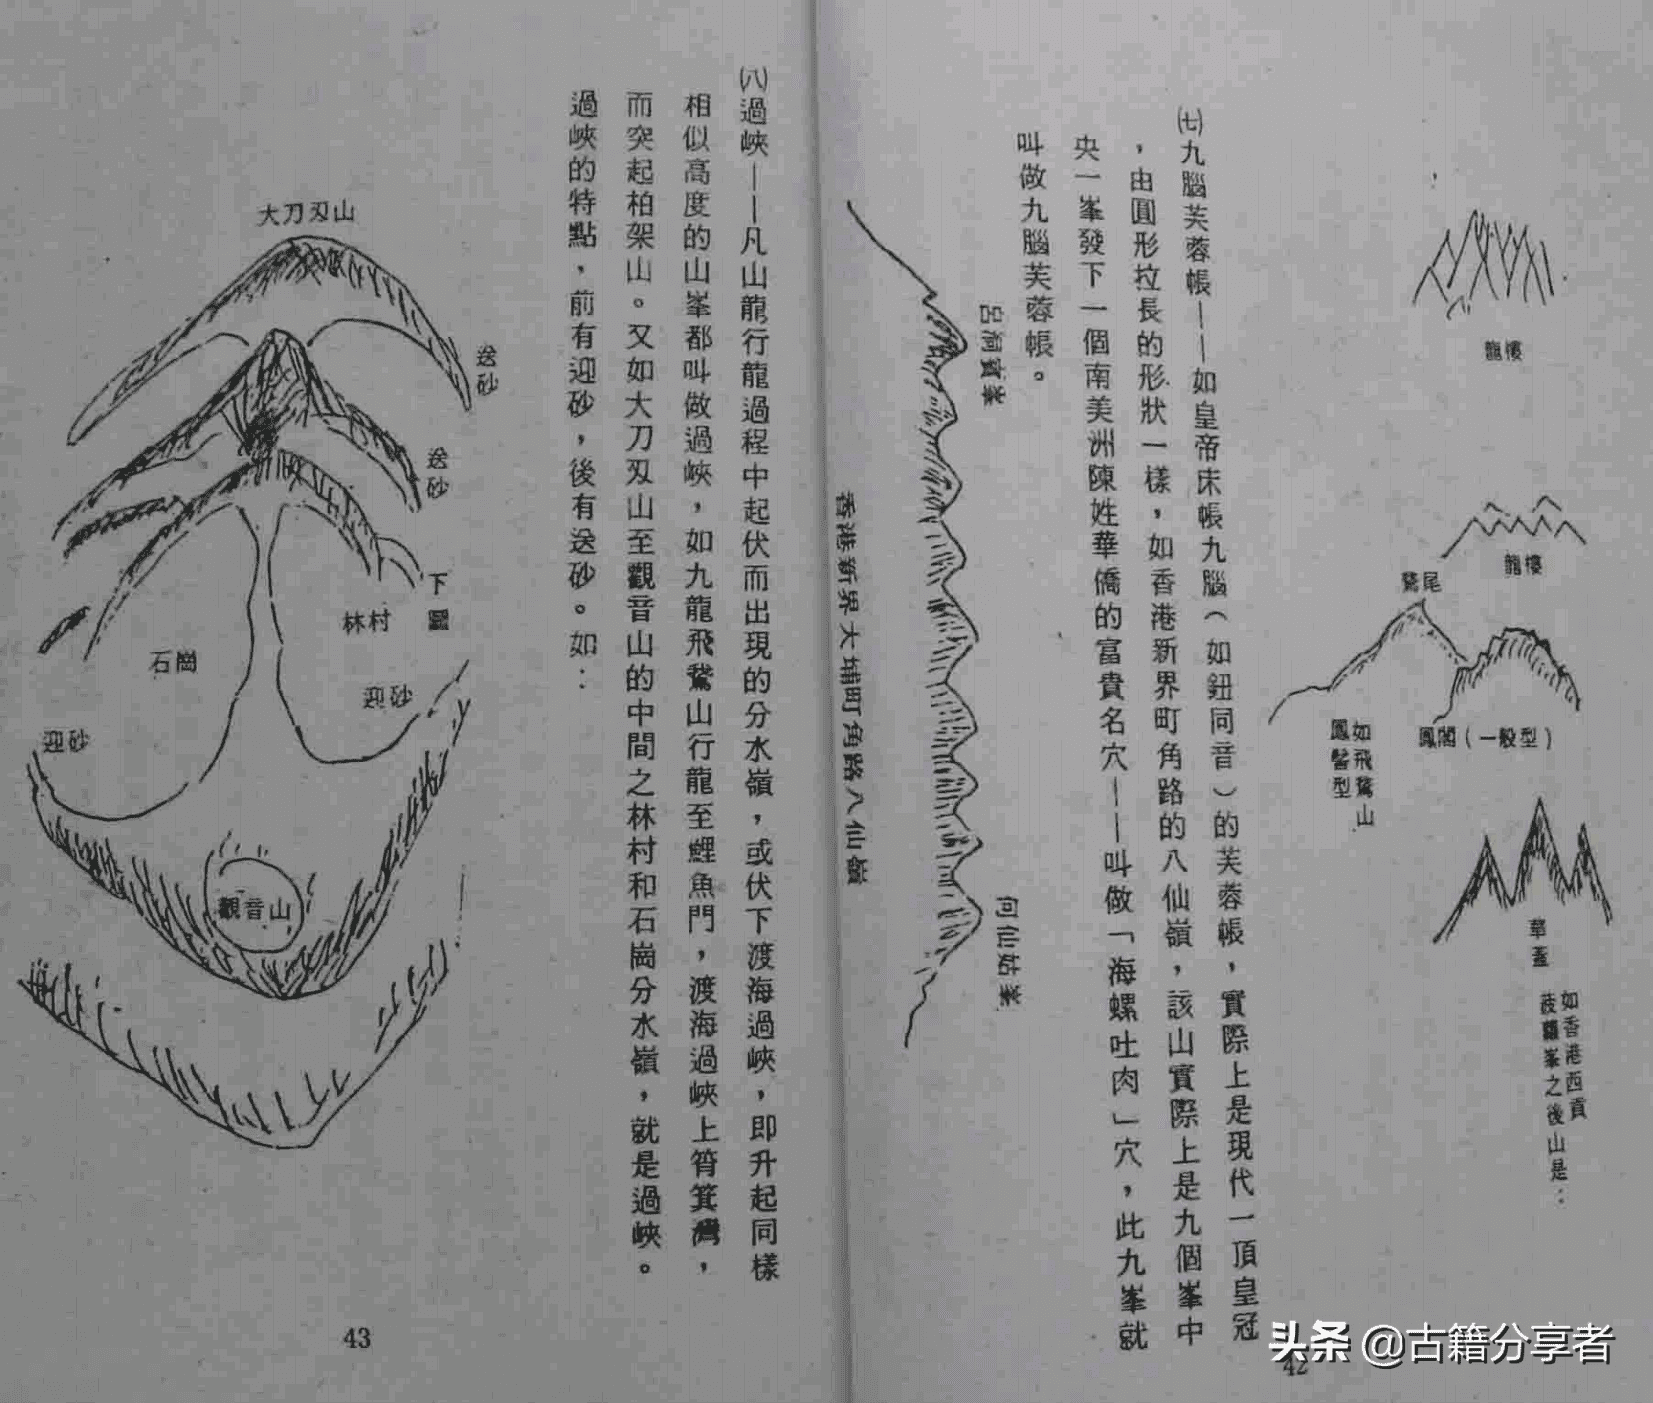 龍樓
龍樓
鵞尾
鳳閣（一般型）
如飛鵞山
鳳髻型
華蓋
如香港西貢
菠蘿峯之後山是：
㈦九腦芙蓉帳——如皇帝床帳九腦（如鈕同音）的芙蓉帳，實際上是現代一頂皇冠
，由圓形拉長的形狀一樣，如香港新界町角路的八仙嶺，該山實際上是九個峯中
央一峯發下一個南美洲陳姓華僑的富貴名穴——叫做「海螺吐肉」穴，此九峯就
叫做九腦芙蓉帳。
呂洞賓峯
何仙姑峯
香港新界大埔町角路八仙嶺
42
㈧過峽——凡山龍行龍過程中起伏而出現的分水嶺，或伏下渡海過峽，即升起同樣
相似高度的山峯都叫做過峽，如九龍飛鵞山行龍至鯉魚門，渡海過峽上筲箕灣，
而突起柏架山。又如大刀刄山至觀音山的中間之林村和石崗分水嶺，就是過峽。
過峽的特點，前有迎砂，後有送砂。如：
大刀刄山
送砂
送砂
下
林村
石崗
迎砂
迎砂
觀音山
43
头条 @古籍分享者